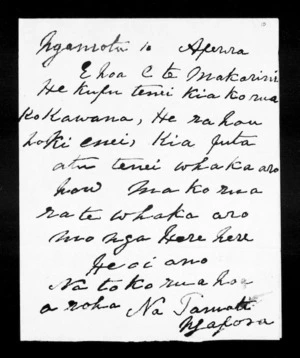 Ngamotu 10 Aperira
E hoa E te Makarini
He kupu tenei kia korua
ko Kawana, He ra hou
hoki enei, Kia puta
atu tenei whaka aro
hou ma korua
ra te whaka aro
mo nga Here here
Heoi ano
Na to korua hoa
aroha Na Tamati
Ngapora